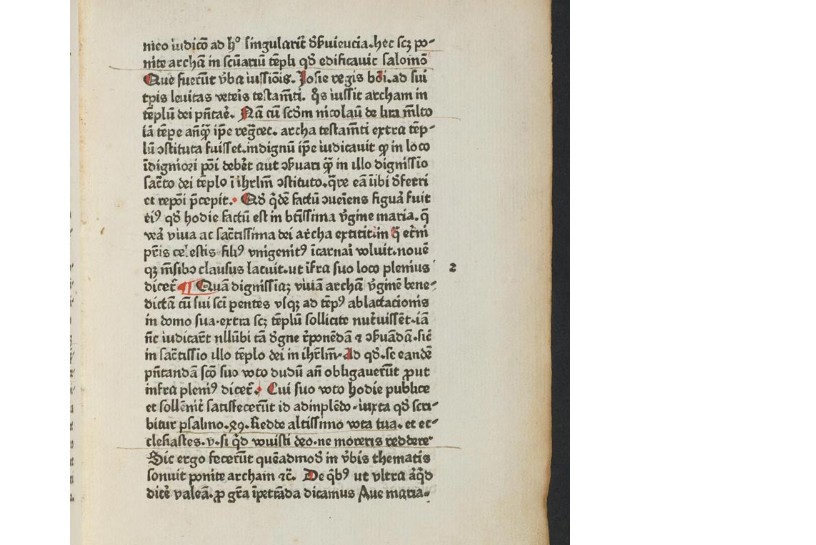 nico iudicō ad hᵒ singularit̄ ꝺ̄ꝯueniencia. hec scꝫ po-
nite archā in scūariū tēpli qď edificauit salomō
Que fuerūt v̄ba iussiōis. Josie regis bōi. ad sui
tp̄is leuitas veteris testam̄ti. q̄s iussit archam in
tēplū dei p̄ntāē. Nā cū scd̄m nicolaū de lira m̄lto
iā tēpe añq̄ ip̄e regr̄et. archa testam̄ti extra tēp-
lū ꝯstituta fuisset. indignū ip̄e iudicauit ꝙ in loco
īdigniori pōi debēt aut ꝯẜuari ꝙ̄ in illo dignissīo
sac̄to dei tēplo ī ihrl̄m ꝯstituto. q̄re eā ibi ꝺ̄ferri
et repōi p̄cepit. Qď qďē factū ꝯueniēs figuā fuit
eiꝰ qď hodie factū est in btīssima v̄gine maria. q̄
wā viua ac sac̄tissima dei archa extitit. in q̄ et̄ni
pr̄is celestis filiꝰ vnigenitꝰ īcarnai voluit. nouē
qꝫ m̄sibꝰ clausus latuit. ut īfra suo loco plenius
dicet̄ Quā dignissiā viuā archā v̄ginē bene-
dictā cū sui sc̄i pentes vsqꝫ ad tēpꝰ ablactacionis
in domo sua. extra scꝫ tēplū sollicite nut̄uissēt. iā
in sac̄tissīo illo tēplo dei in ihr̄lm. Ad qď. se eandē
p̄ntandā sc̄o suo voto dudū añ obligauerūt ꝓut
infra pleniꝰ dicet̄. Cui suo voto hodie publice
et sollēnit̄ satisfecerūt id adinplēdo. iuxta qď scri-
bitur psalmo. 89. Redde altissimo vota tua. et ec-
clesiastes. v. si qď vouisti deo. ne moreris reddere
Sic ergo fecerūt quēadmoď in v̄bis thematis
sonuit ponite archam ⁊c̄. De q̄bꝰ ut vltra aꝗ̄d
dicē̄ valeā. ꝓ gr̄a īpetrāda dicamus Aue maria.
2